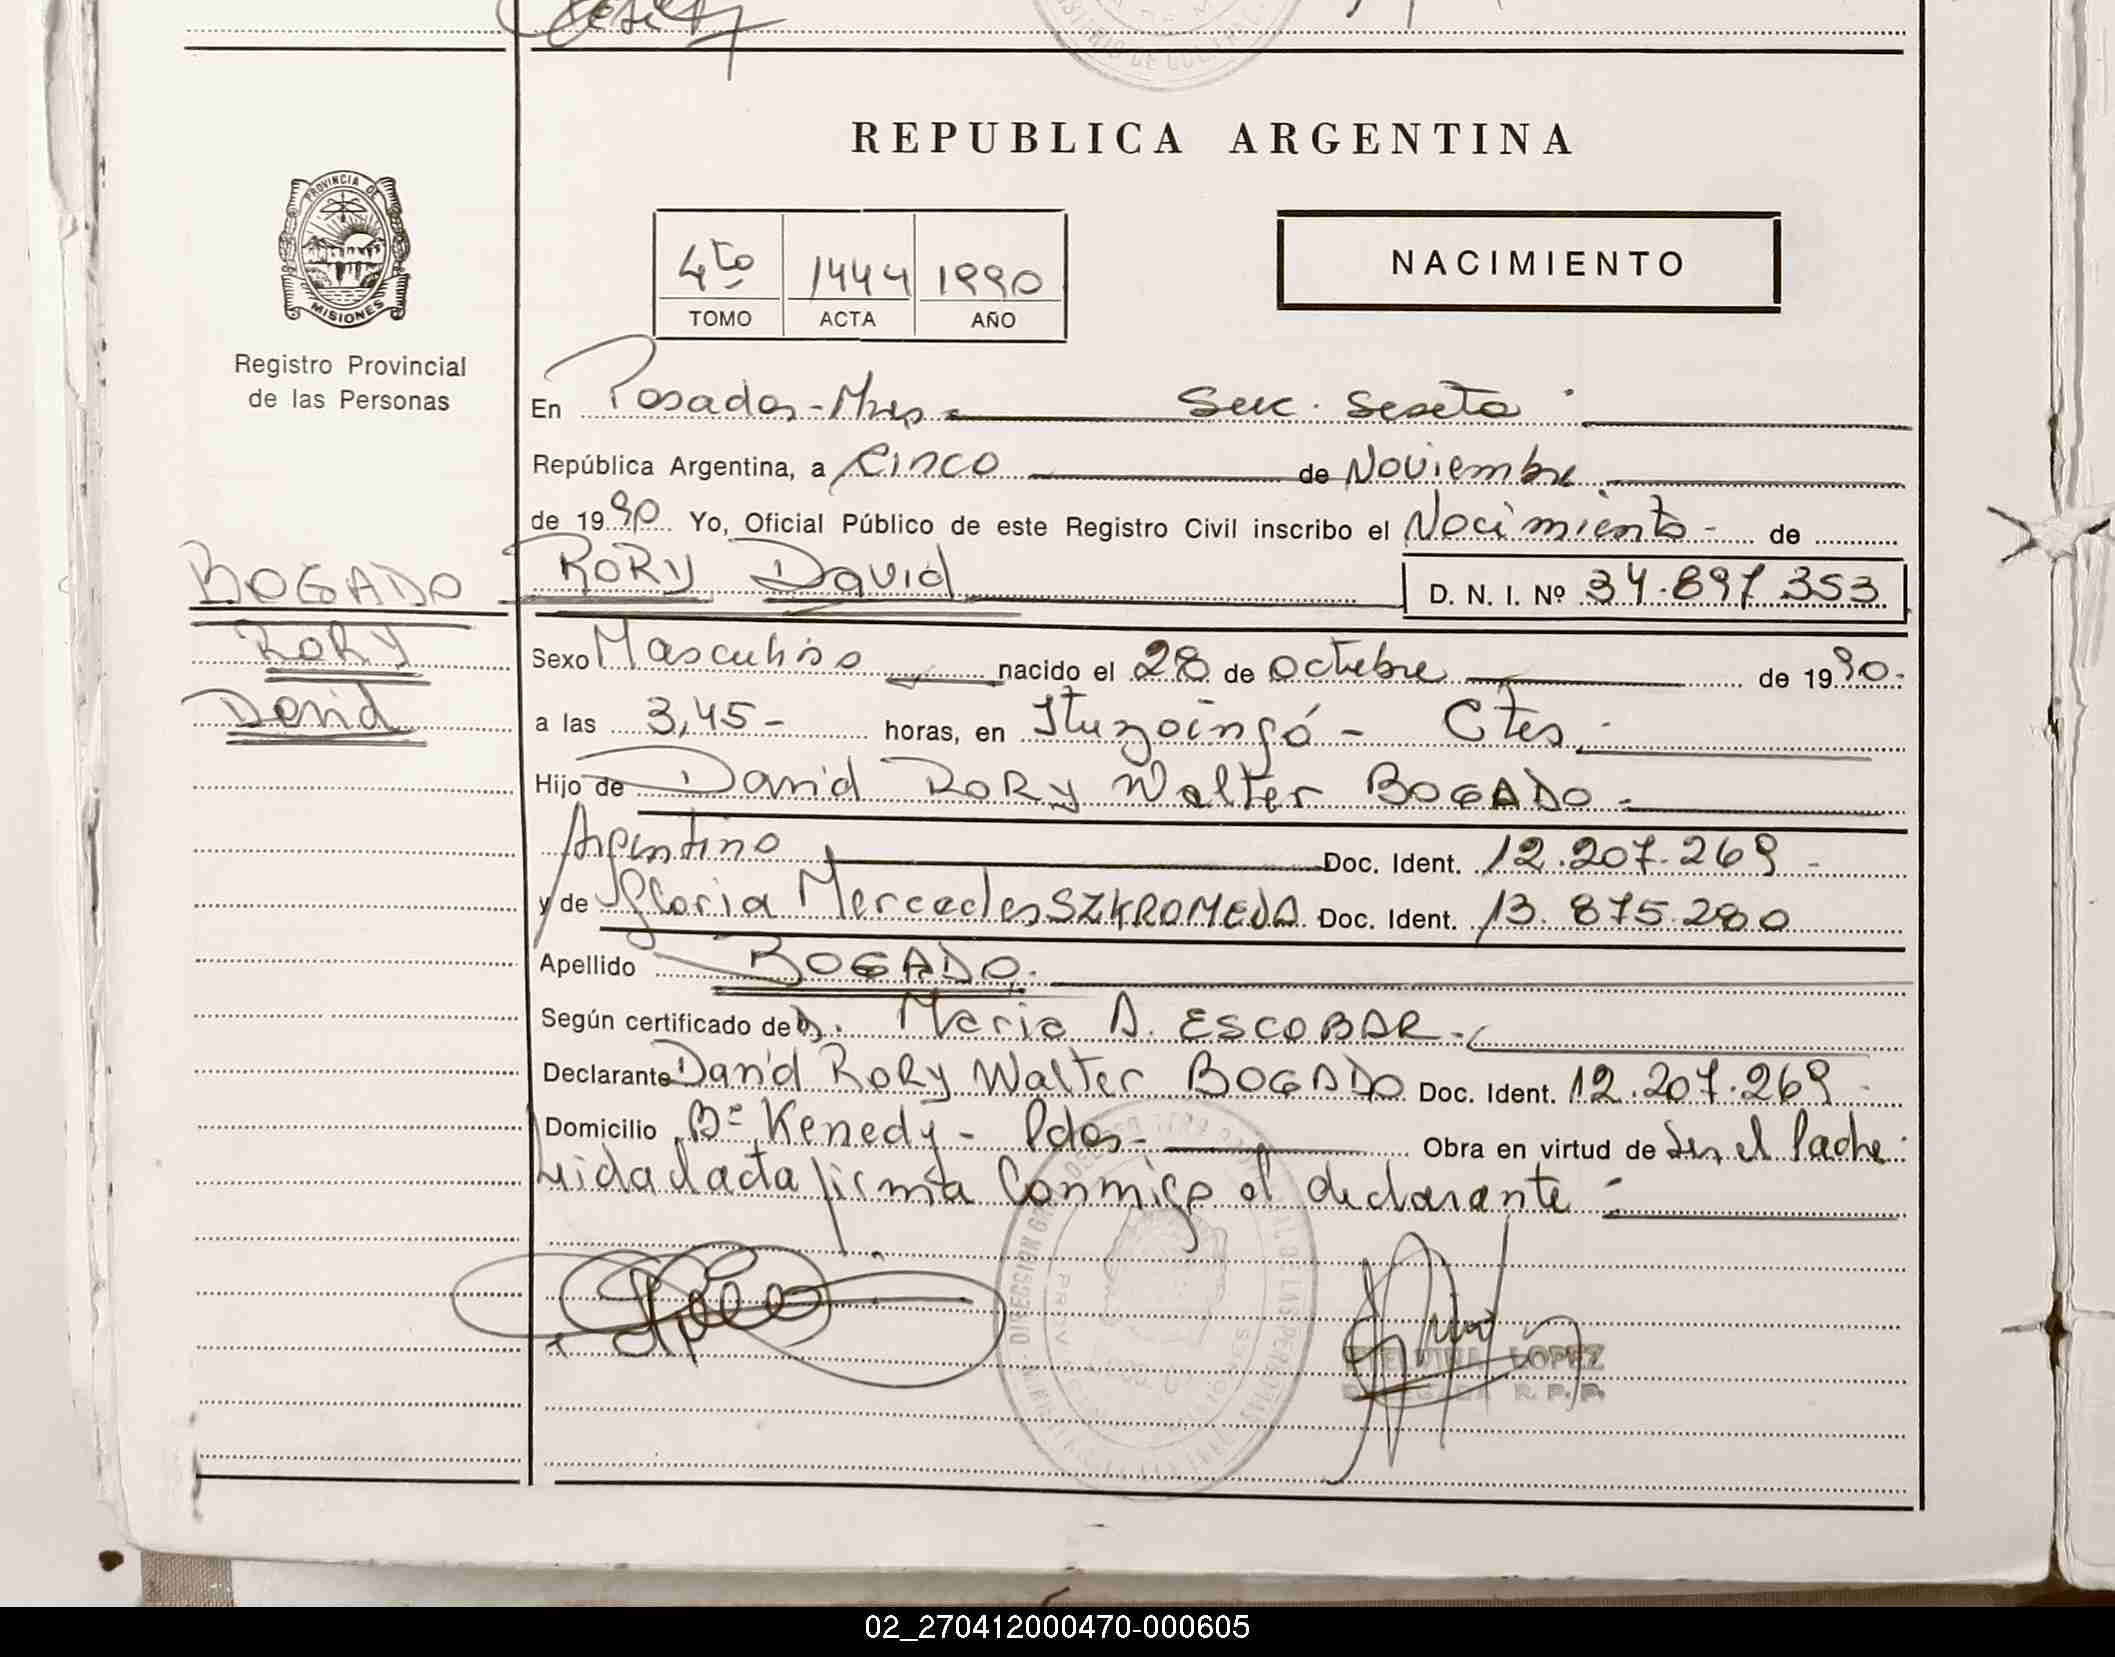 REPUBLICA ARGENTINA
PROVINCIA DE
MISIONES
Registro Provincial
de las Personas
4to 1444 1990
TOMO ACTA AÑO
NACIMIENTO
En Posadas-Mnes Secc. Sexta
República Argentina, a Cinco de Noviembre
de 1990 Yo, Oficial Público de este Registro Civil inscribo el Nacimiento - de
BOGADO
RORY
David
RORY David D. N. I. Nº 34.897.353
Sexo Masculino nacido el 28 de octubre de 1990.
a las 3,45- horas, en Ituzaingó - Ctes.
Hijo de David RORY Walter BOGADO
Argentino Doc. Ident. 12.207.269 -
y de Gloria Mercedes SZKROMEDA Doc. Ident. 13.875.280
Apellido BOGADO.
Según certificado de Maria A. ESCOBAR.
Declarante David RORY Walter BOGADO Doc. Ident. 12.207.269 -
Domicilio Bº Kenedy - Pdas- Obra en virtud de Ser el Padre.
Leida el acta firma Conmigo el declarante
LOPEZ
R. P. P.
02_270412000470-000605